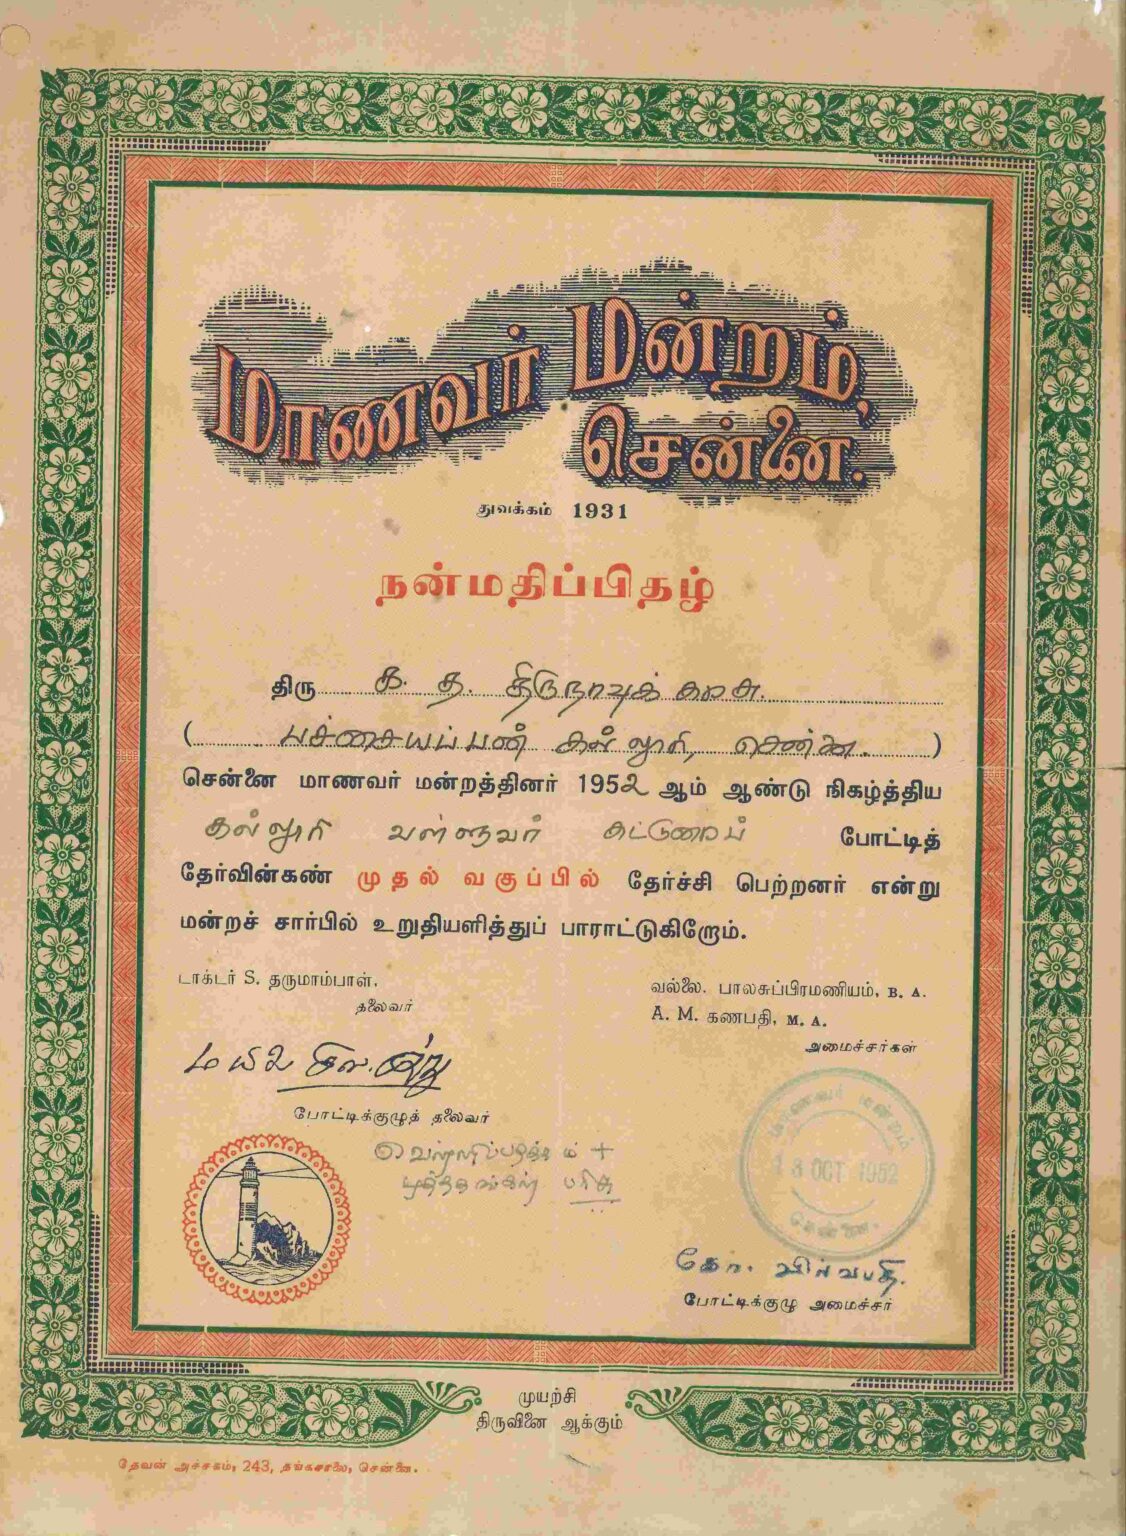 மாணவர் மன்றம்,
சென்னை.
துவக்கம் 1931
நன்மதிப்பிதழ்
திரு க. த. திருநாவுக்கரசு.
( பச்சையப்பன் கல்லூரி, சென்னை. )
சென்னை மாணவர் மன்றத்தினர் 1952 ஆம் ஆண்டு நிகழ்த்திய
கல்லூரி வள்ளுவர் கட்டுரைப் போட்டித்
தேர்வின்கண் முதல் வகுப்பில் தேர்ச்சி பெற்றனர் என்று
மன்றச் சார்பில் உறுதியளித்துப் பாராட்டுகிறோம்.
டாக்டர் S. தருமாம்பாள்,
தலைவர்
வல்லை. பாலசுப்பிரமணியம், B. A.
A. M. கணபதி, M. A.
அமைச்சர்கள்
மயிலை சிவ. முத்து
போட்டிக்குழுத் தலைவர்
வெள்ளிப்பதக்கம் +
புத்தகங்கள் பரிசு
மாணவர் மன்றம்
18 OCT 1952
சென்னை.
கோ. வில்வபதி.
போட்டிக்குழு அமைச்சர்
முயற்சி
திருவினை ஆக்கும்
தேவன் அச்சகம், 243, தங்கசாலை, சென்னை.